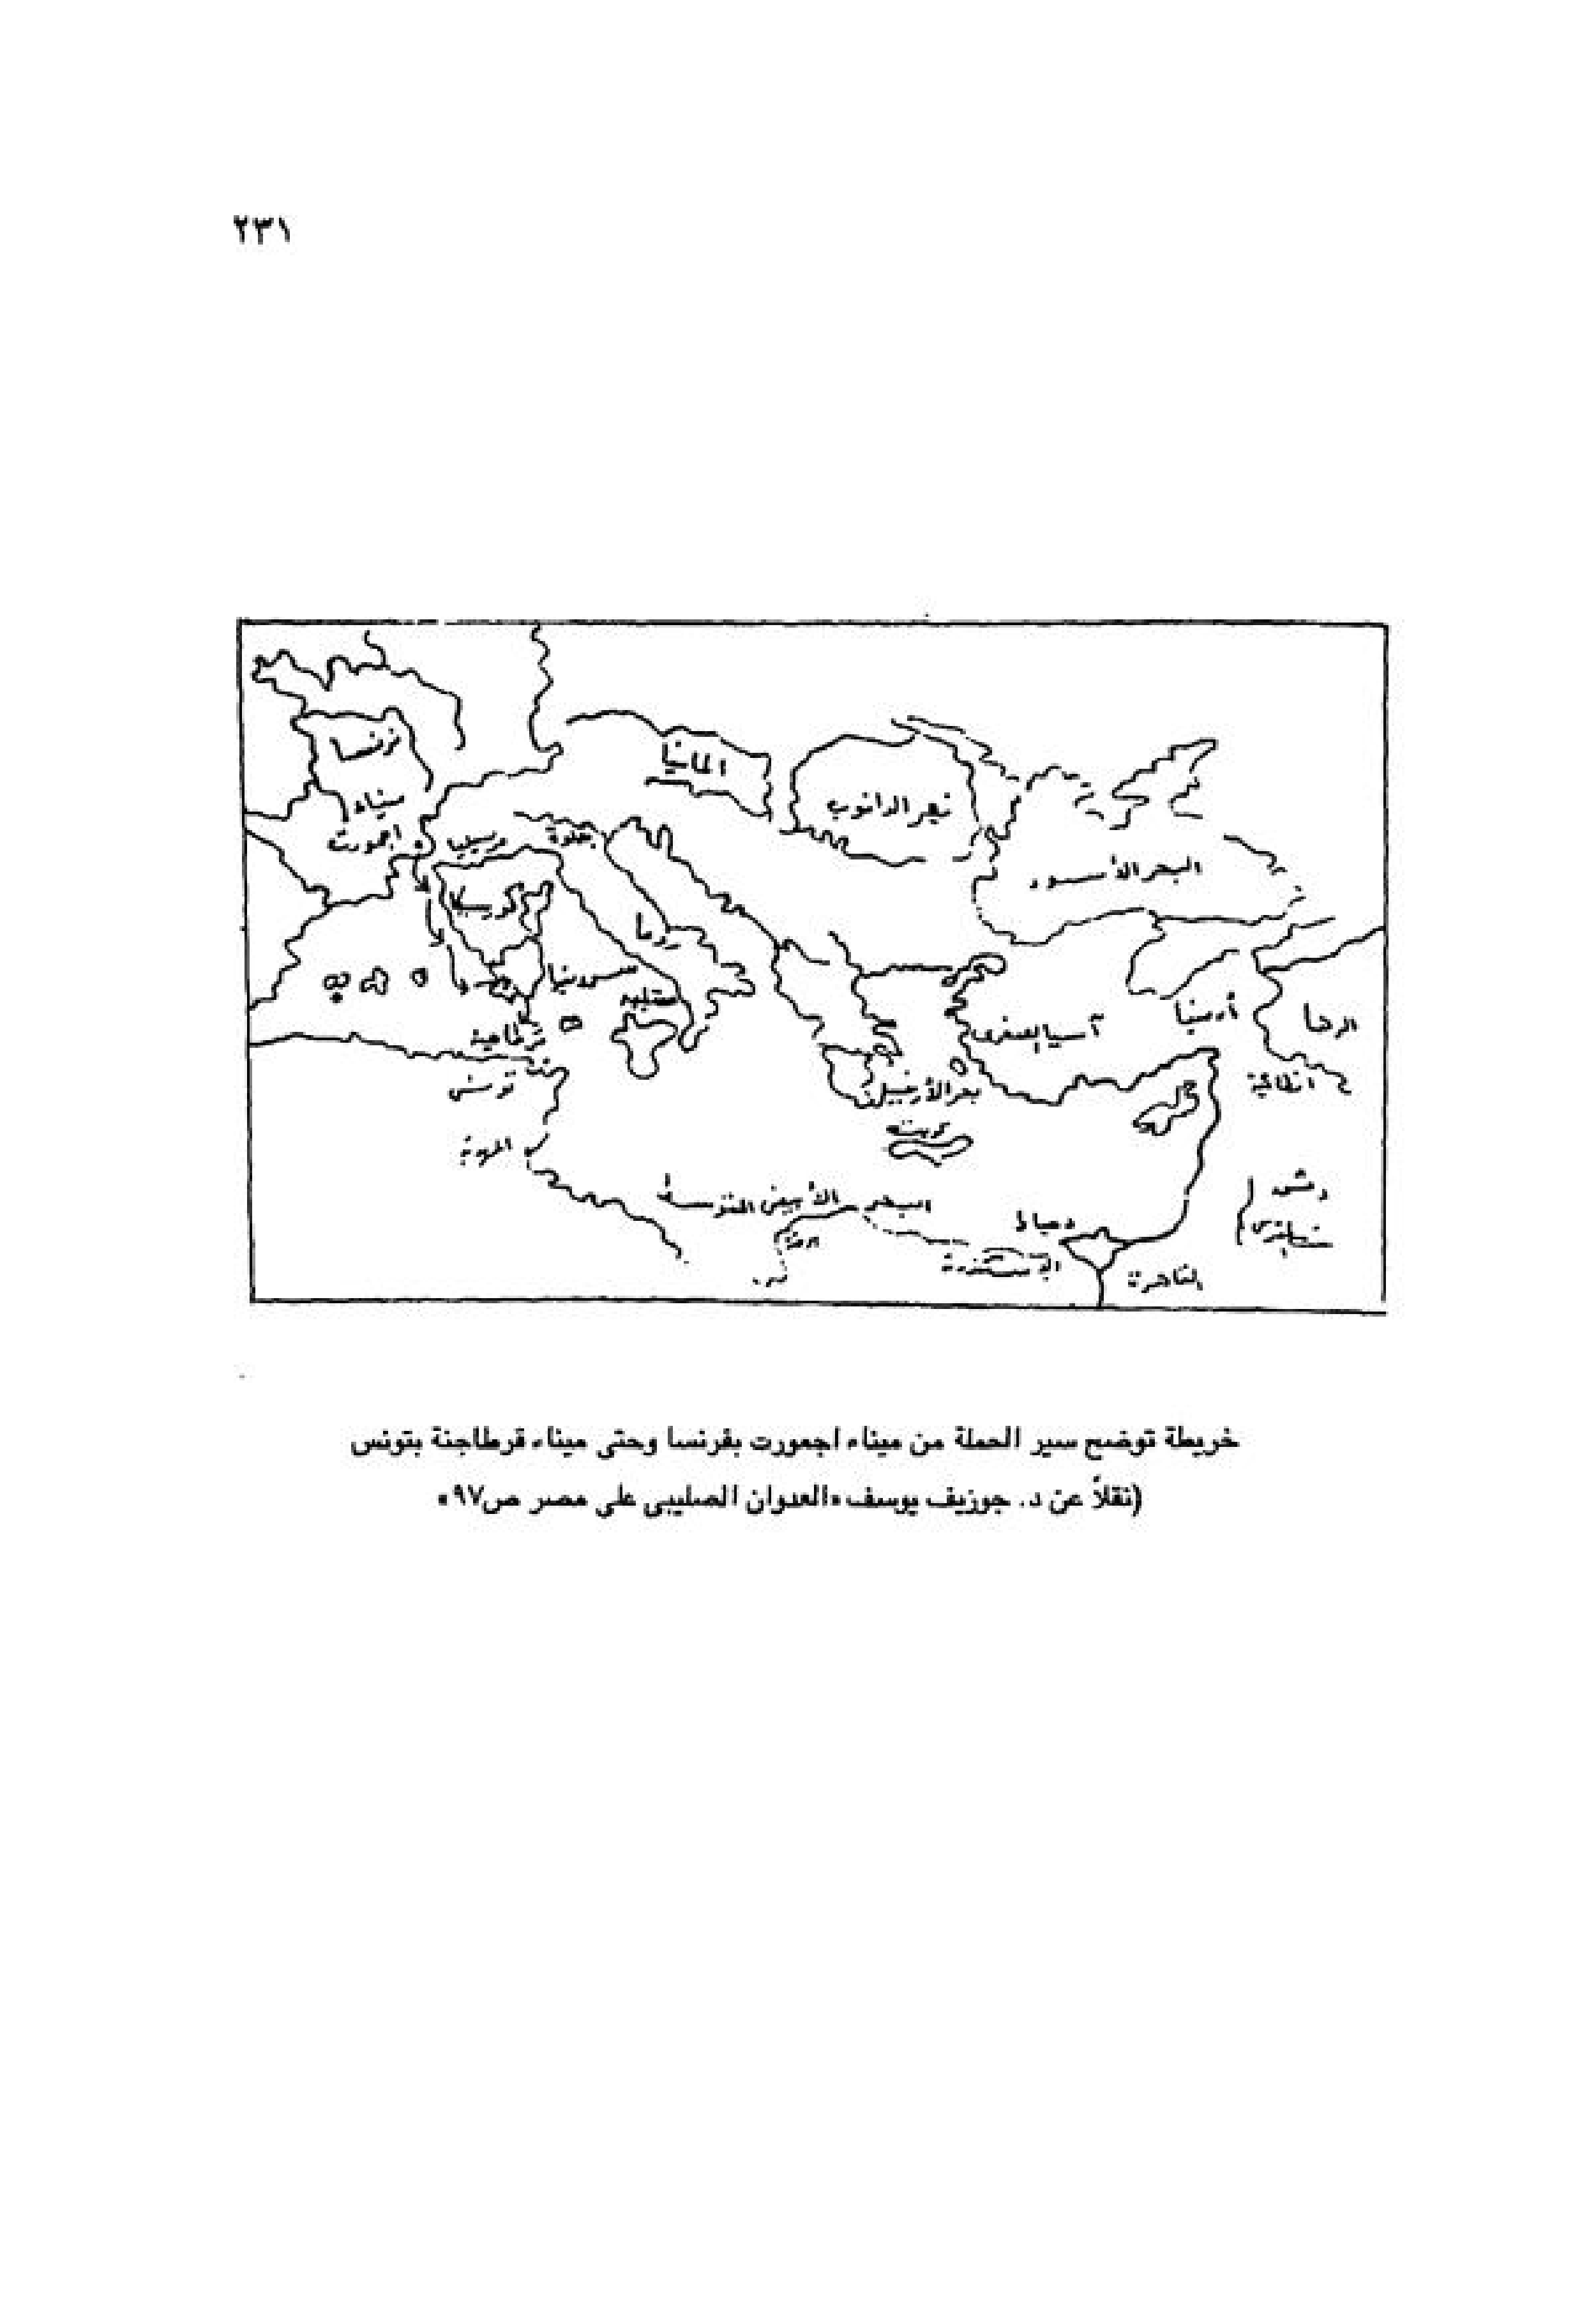 ٢٣١
فرنسا
ميناء
اجمورت
مرسيليا
جنوة
المانيا
نهر الدانوب
البحر الأسود
كورسيكا
روما
سردنيا
صقلية
قرطاجنة
تونس
المهدية
آسيا الصغرى
أرمينيا
الرها
انطاكية
بحر الأرخبيل
كريت
البحر الأبيض المتوسط
برقة
دمياط
الإسكندرية
القاهرة
دمشق
خريطة توضح سير الحملة من ميناء اجمورت بفرنسا وحتى ميناء قرطاجنة بتونس
(نقلاً عن د. جوزيف يوسف «العدوان الصليبى على مصر ص٩٧»